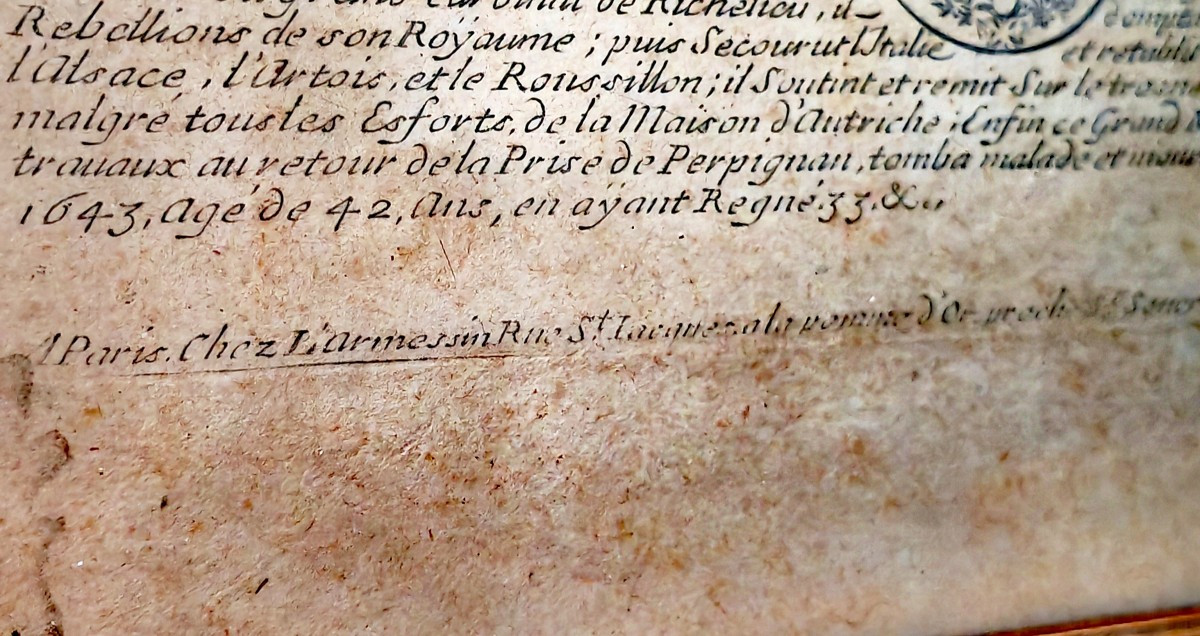 Cardinal de Richelieu, il
Rebellions de son Roÿaume ; puis Secourut l'Italie et retablit
l'Alsace, l'Artois, et le Roussillon ; il Soutint et remit Sur le
malgré tous les Esforts, de la Maison d'Autriche ; Enfin ce Grand
trauaux au retour de la Prise de Perpignan, tomba malade et
1643, Agé de 42, Ans, en aÿant Regné 33. &.,
A Paris. Chez L'armessin Rue St. Iacques. a la pomme d'Or proche St.